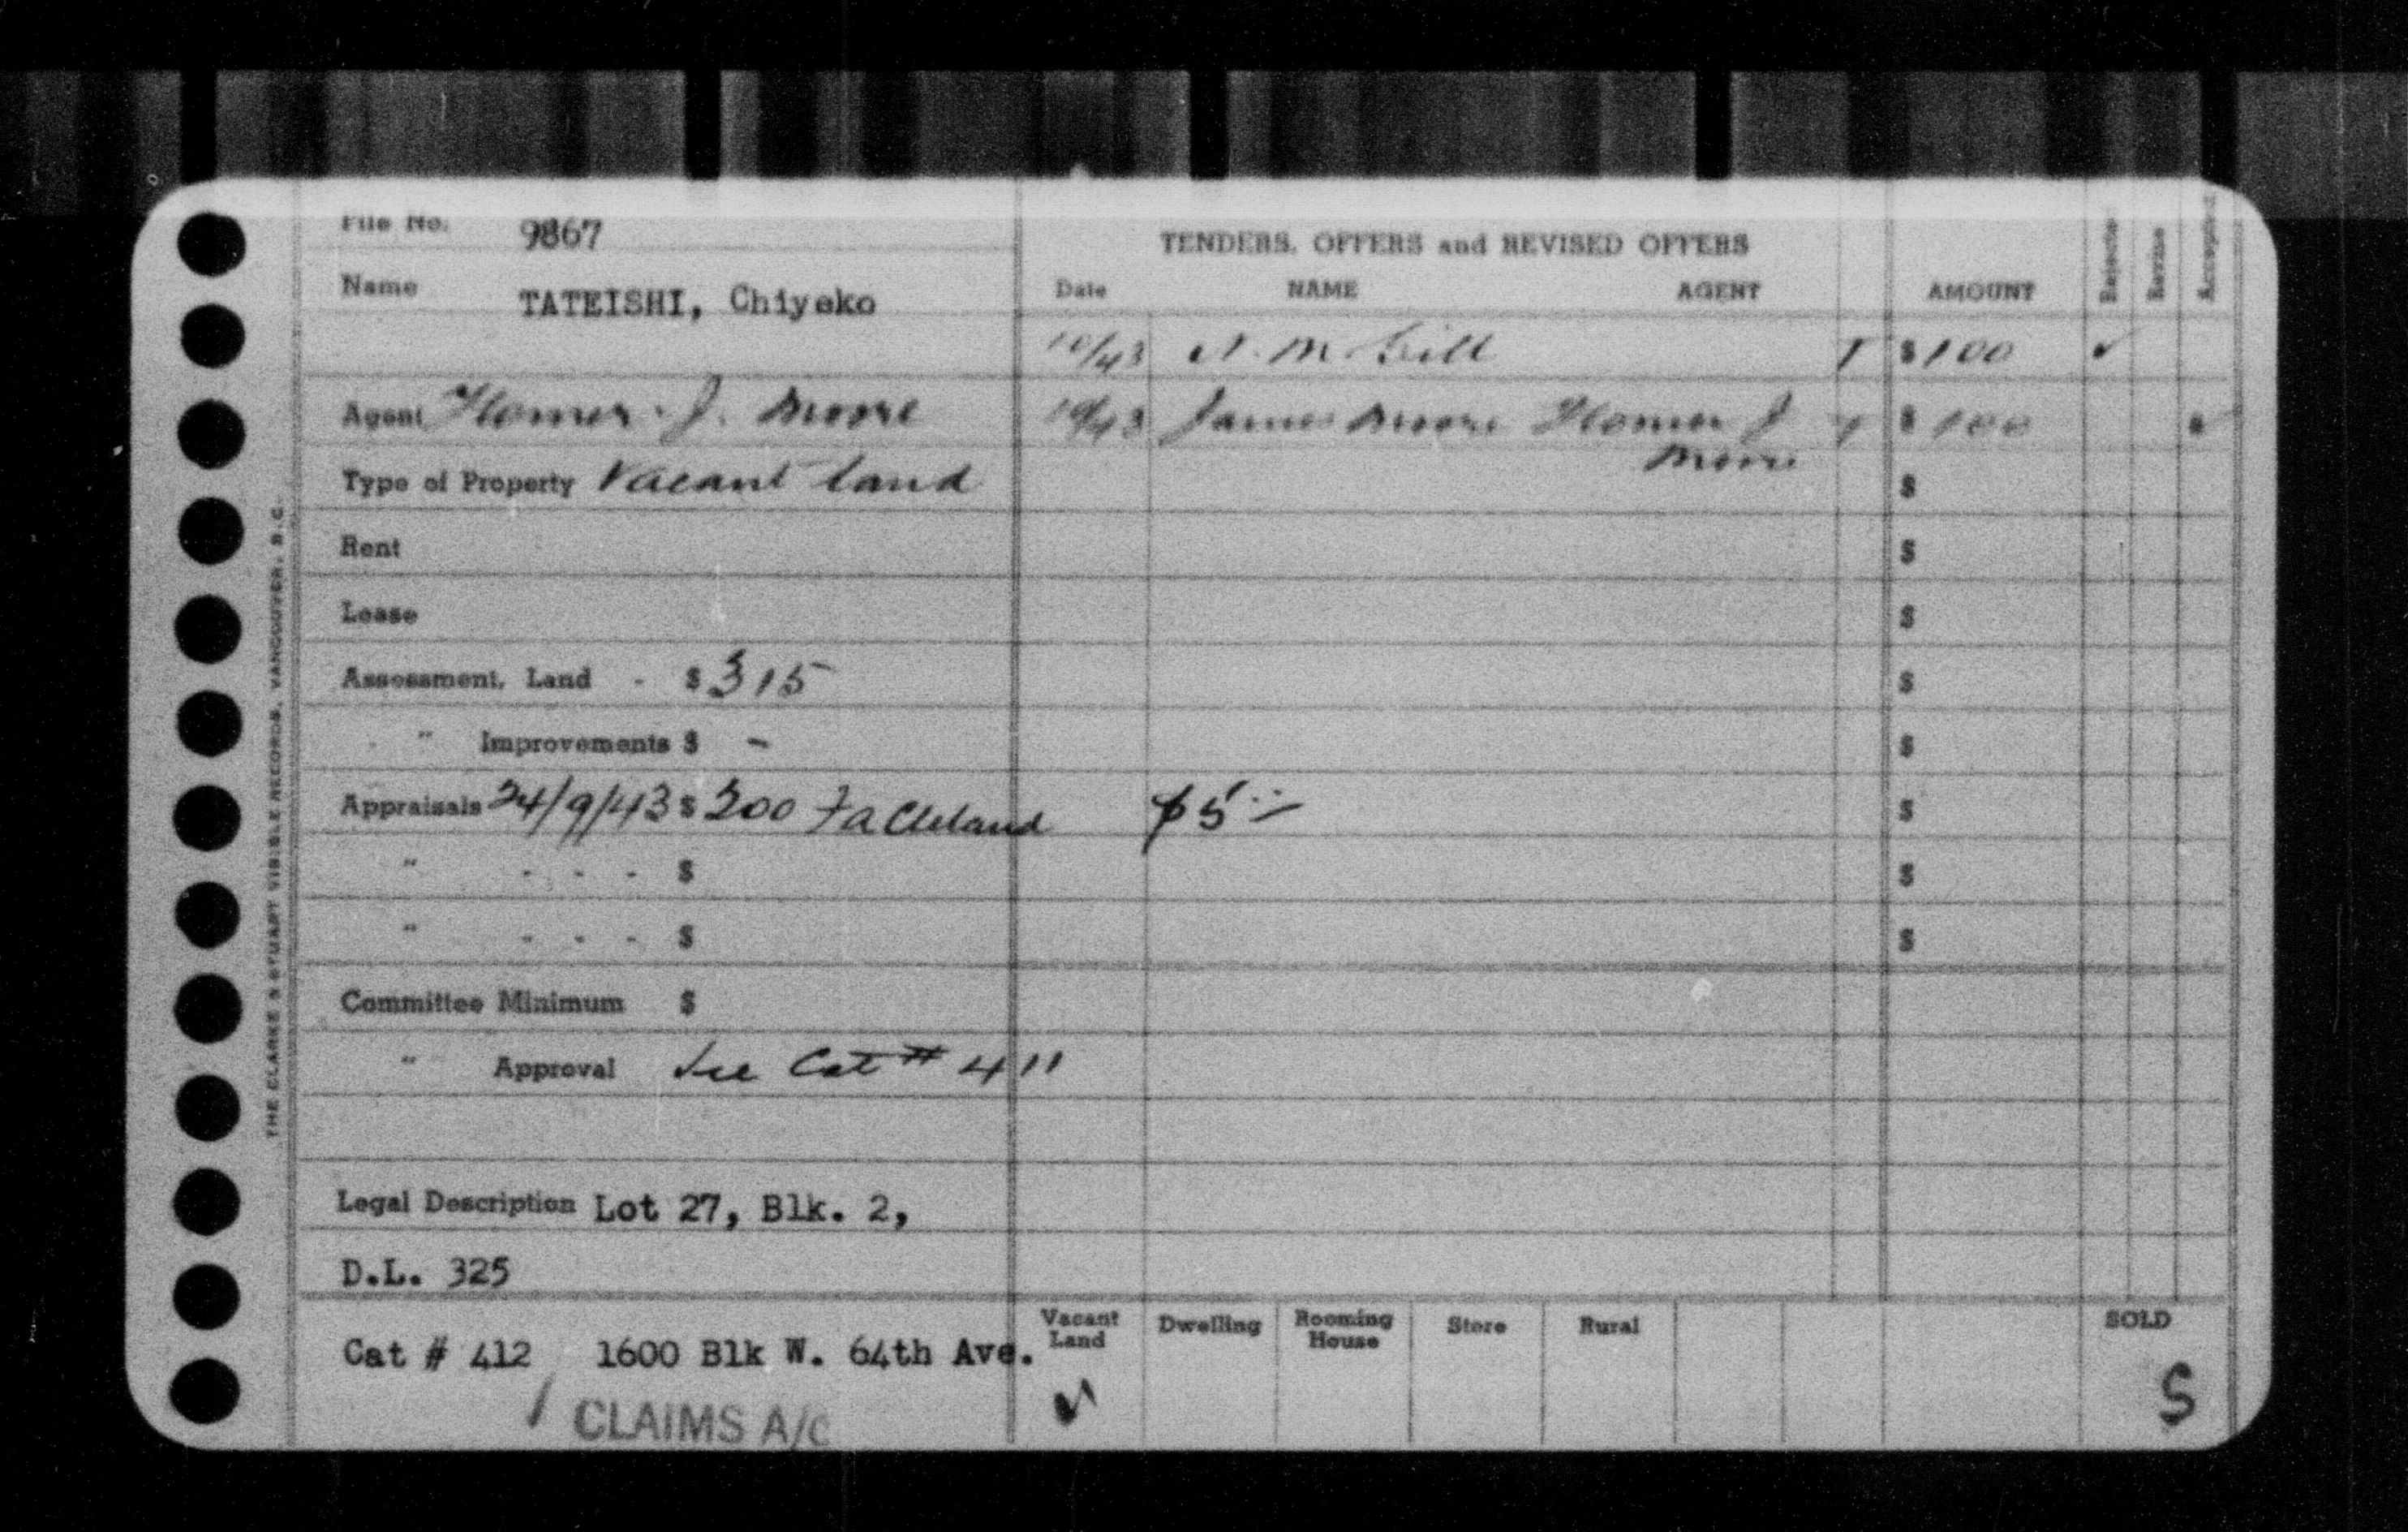 File No. 9867
Name TATEISHI, Chiyeko
Agent Homer J. Moore
Type of Property Vacant land
Rent
Lease
Assessment, Land - $ 315
" Improvements $ -
Appraisals 24/9/43 $ 200 Fa Cleland $5
" - - - $
" - - - $
Committee Minimum $
" Approval See Cat # 411
Legal Description Lot 27, Blk. 2,
D.L. 325
Cat # 412 1600 Blk W. 64th Ave.
CLAIMS A/C
TENDERS, OFFERS and REVISED OFFERS
Date NAME AGENT AMOUNT Rejected Revise Accepted
10/43 N. M. Gill T $ 100 ✓
10/43 James Moore Homer J Moore T $ 100 ✓
$
$
$
$
$
$
$
$
Vacant Land Dwelling Rooming House Store Rural SOLD
✓ S
THE CLARKE & STUART VISIBLE RECORDS, VANCOUVER, B.C.